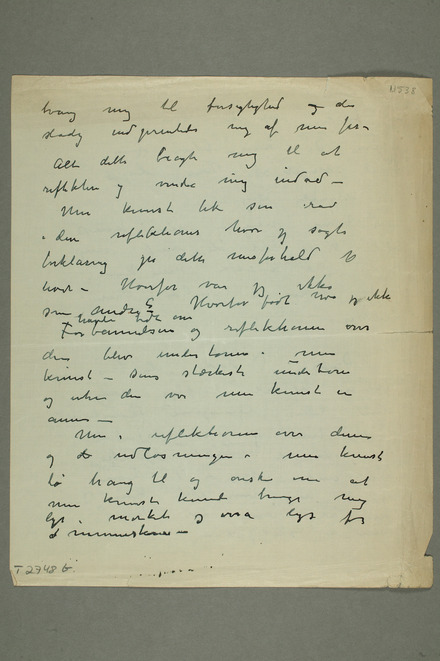 N 538
tvang mig til forsigtighed og der
stadig indprentedes mig af min far
Alt dette bragte mig til at
reflektere og vende mig indad –
Min kunst fik sin rod
i den refleksions hvor jeg søgte
forklaring på dette misforhold til
livet – Hvorfor var jeg ikke
som andre? Hvorfor født hvad jeg ikke
havde bedt om
Forbannelsen og reflektionen over
den blev undertonen i min
kunst – dens stærkeste undertone
og uten den var min kunst en
annen –
Men i reflektionen over denne
og udløsningen i min kunst
lå trang til og ønske om at
min kunst kunde bringe mig
lys i mørket og også lys for
menneskene –
T 2748 G.